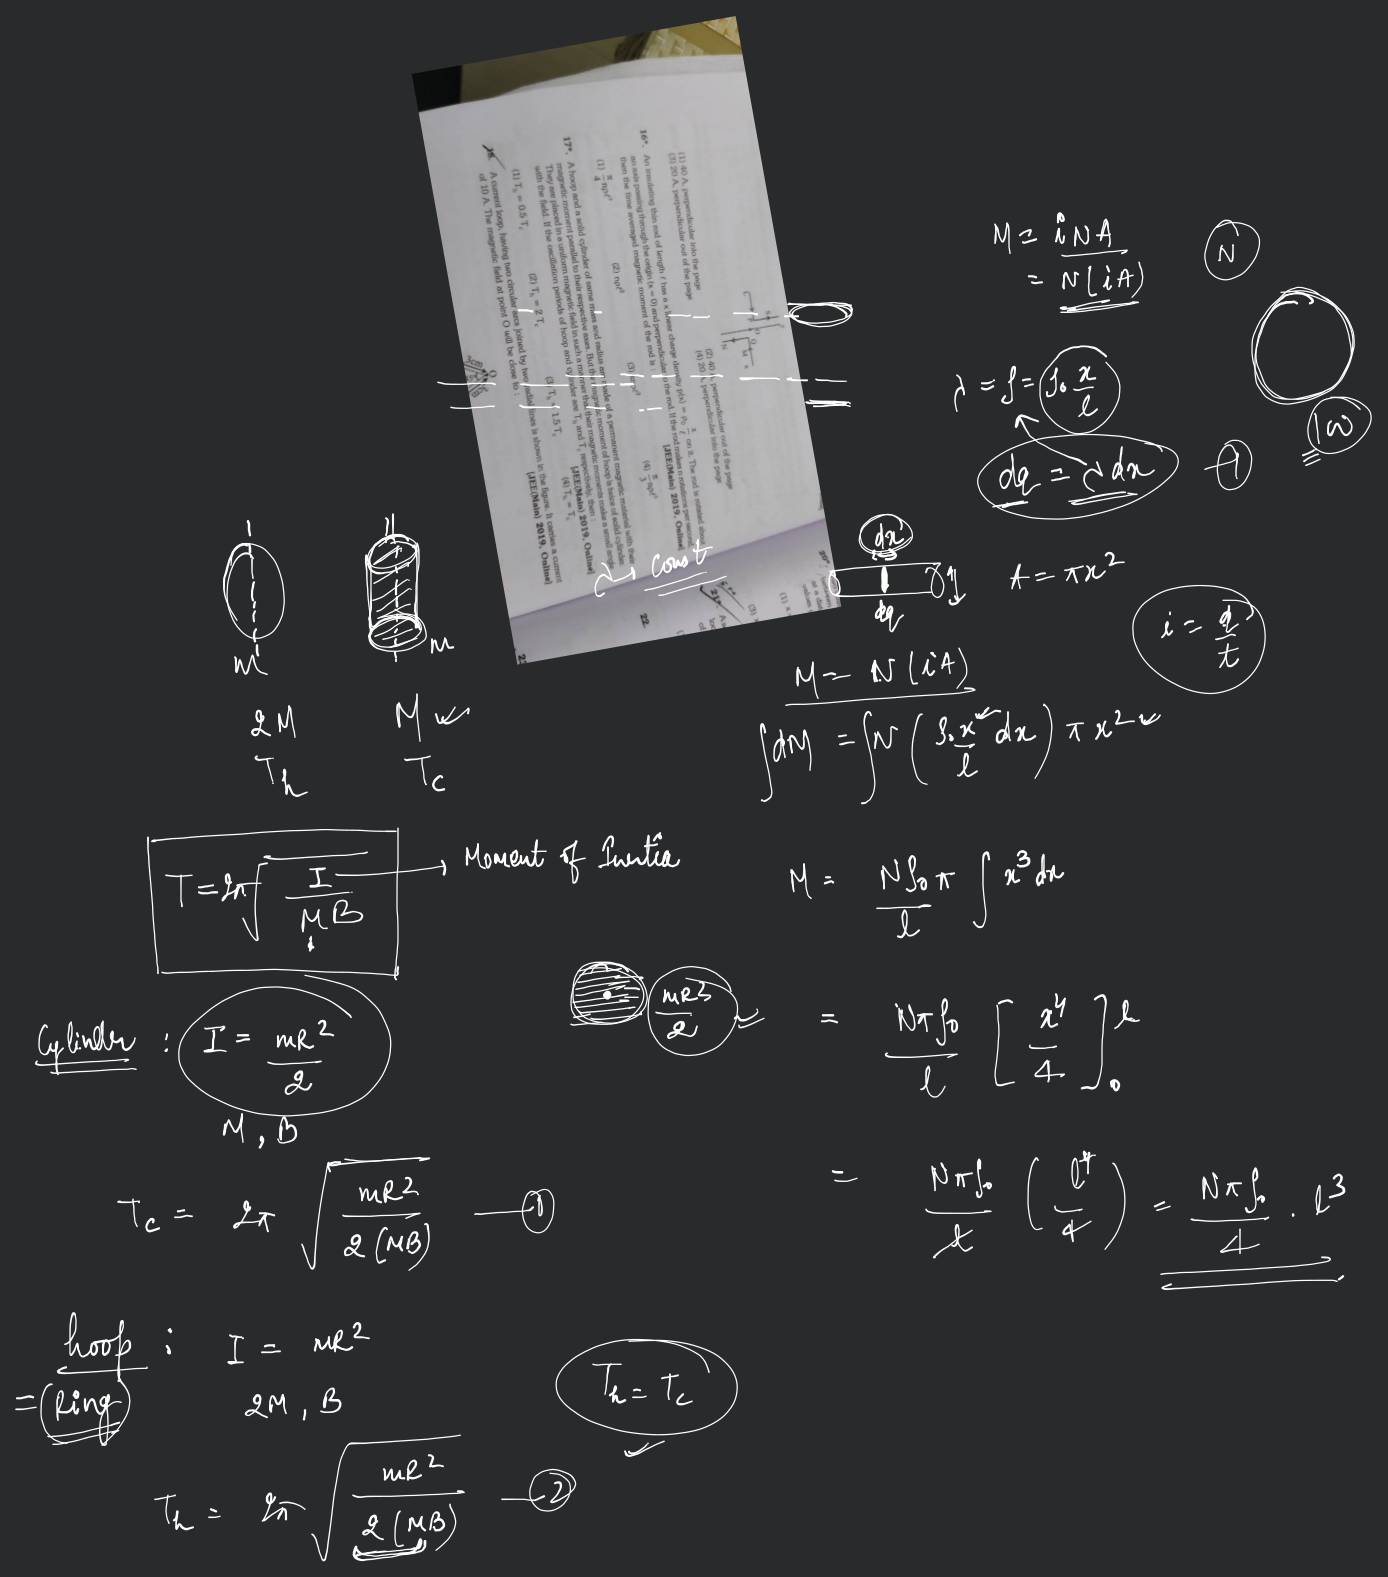 (1) 40 A, perpendicular into the page
(2) 40 A, perpendicular out of the page
(3) 20 A, perpendicular out of the page
(4) 20 A, perpendicular into the page
16*. An insulating thin rod of length ℓ has a x linear charge density ρ(x) = ρ₀ x/ℓ on it. The rod is rotated about
an axis passing through the origin (x = 0) and perpendicular to the rod. If the rod makes n rotations per second,
then the time averaged magnetic moment of the rod is :
[JEE(Main) 2019, Online]
(1) π/4 nρℓ³
(2) nρℓ³
(3) πnρℓ³
(4) π/3 nρℓ³
17*. A hoop and a solid cylinder of same mass and radius are made of a permanent magnetic material with their
magnetic moment parallel to their respective axes. But the magnetic moment of hoop is twice of solid cylinder.
They are placed in a uniform magnetic field in such a manner that their magnetic moments make a small angle
with the field. If the oscillation periods of hoop and cylinder are Tₕ and T꜀ respectively, then :
[JEE(Main) 2019, Online]
(1) Tₕ = 0.5 T꜀
(2) Tₕ = 2 T꜀
(3) Tₕ = 1.5 T꜀
(4) Tₕ = T꜀
A current loop, having two circular arcs joined by two radial lines is shown in the figure. It carries a current
of 10 A. The magnetic field at point O will be close to :
[JEE(Main) 2019, Online]
22.
λ → const
M = iNA
= N(iA)
N
λ = ρ = ρ₀ x/l
dq = λdx — 1
ω
dx
dq
A = πx²
i = q/t
M = N(iA)
∫dM = ∫N (ρ₀x/l dx) πx²
M = Nρ₀π/l ∫x³dx
= Nπρ₀/l [x⁴/4]₀ˡ
= Nπρ₀/l (l⁴/4) = Nπρ₀/4 . l³
m
m
2M
M
Tₕ
T꜀
T = 2π√(I/MB) → Moment of Inertia
Cylinder : I = mR²/2
mR²/2
M, B
T꜀ = 2π√(mR²/2(MB)) — 1
hoop : I = mR²
= Ring
2M, B
Tₕ = T꜀
Tₕ = 2π√(mR²/2(MB)) — 2